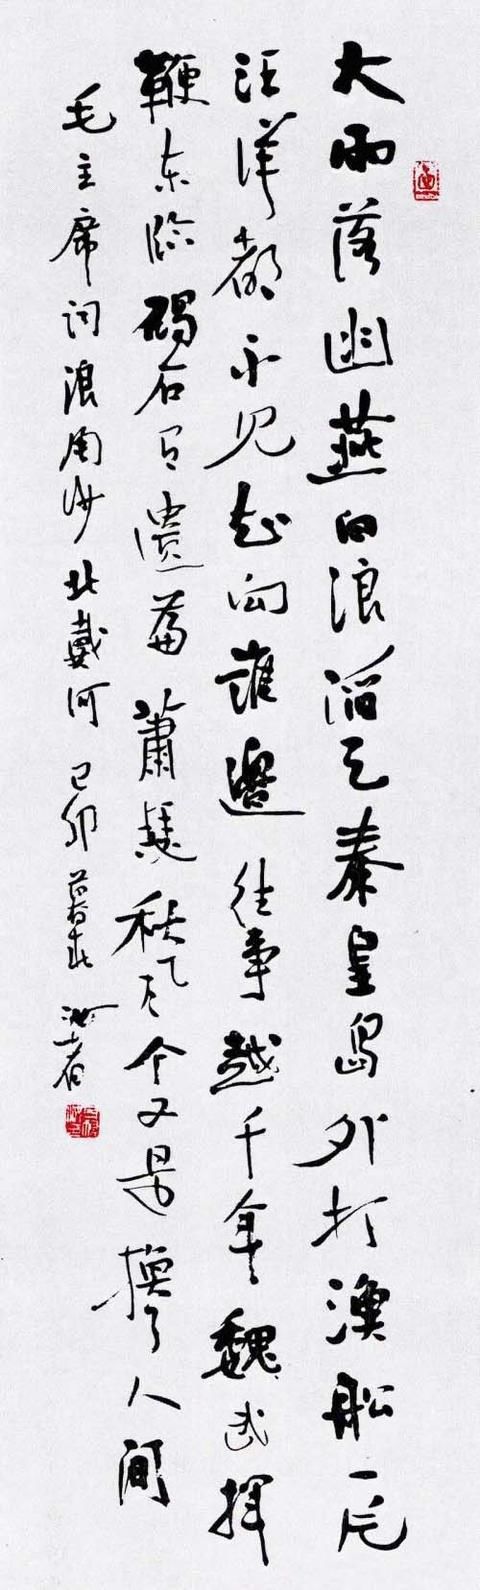 大雨落幽燕白浪滔天秦皇島外打漁船一片
汪洋都不見知向誰邊往事越千年魏武揮
鞭东临碣石有遺篇蕭瑟秋風今又是换了人间
毛主席词浪淘沙北戴河 己卯暮春